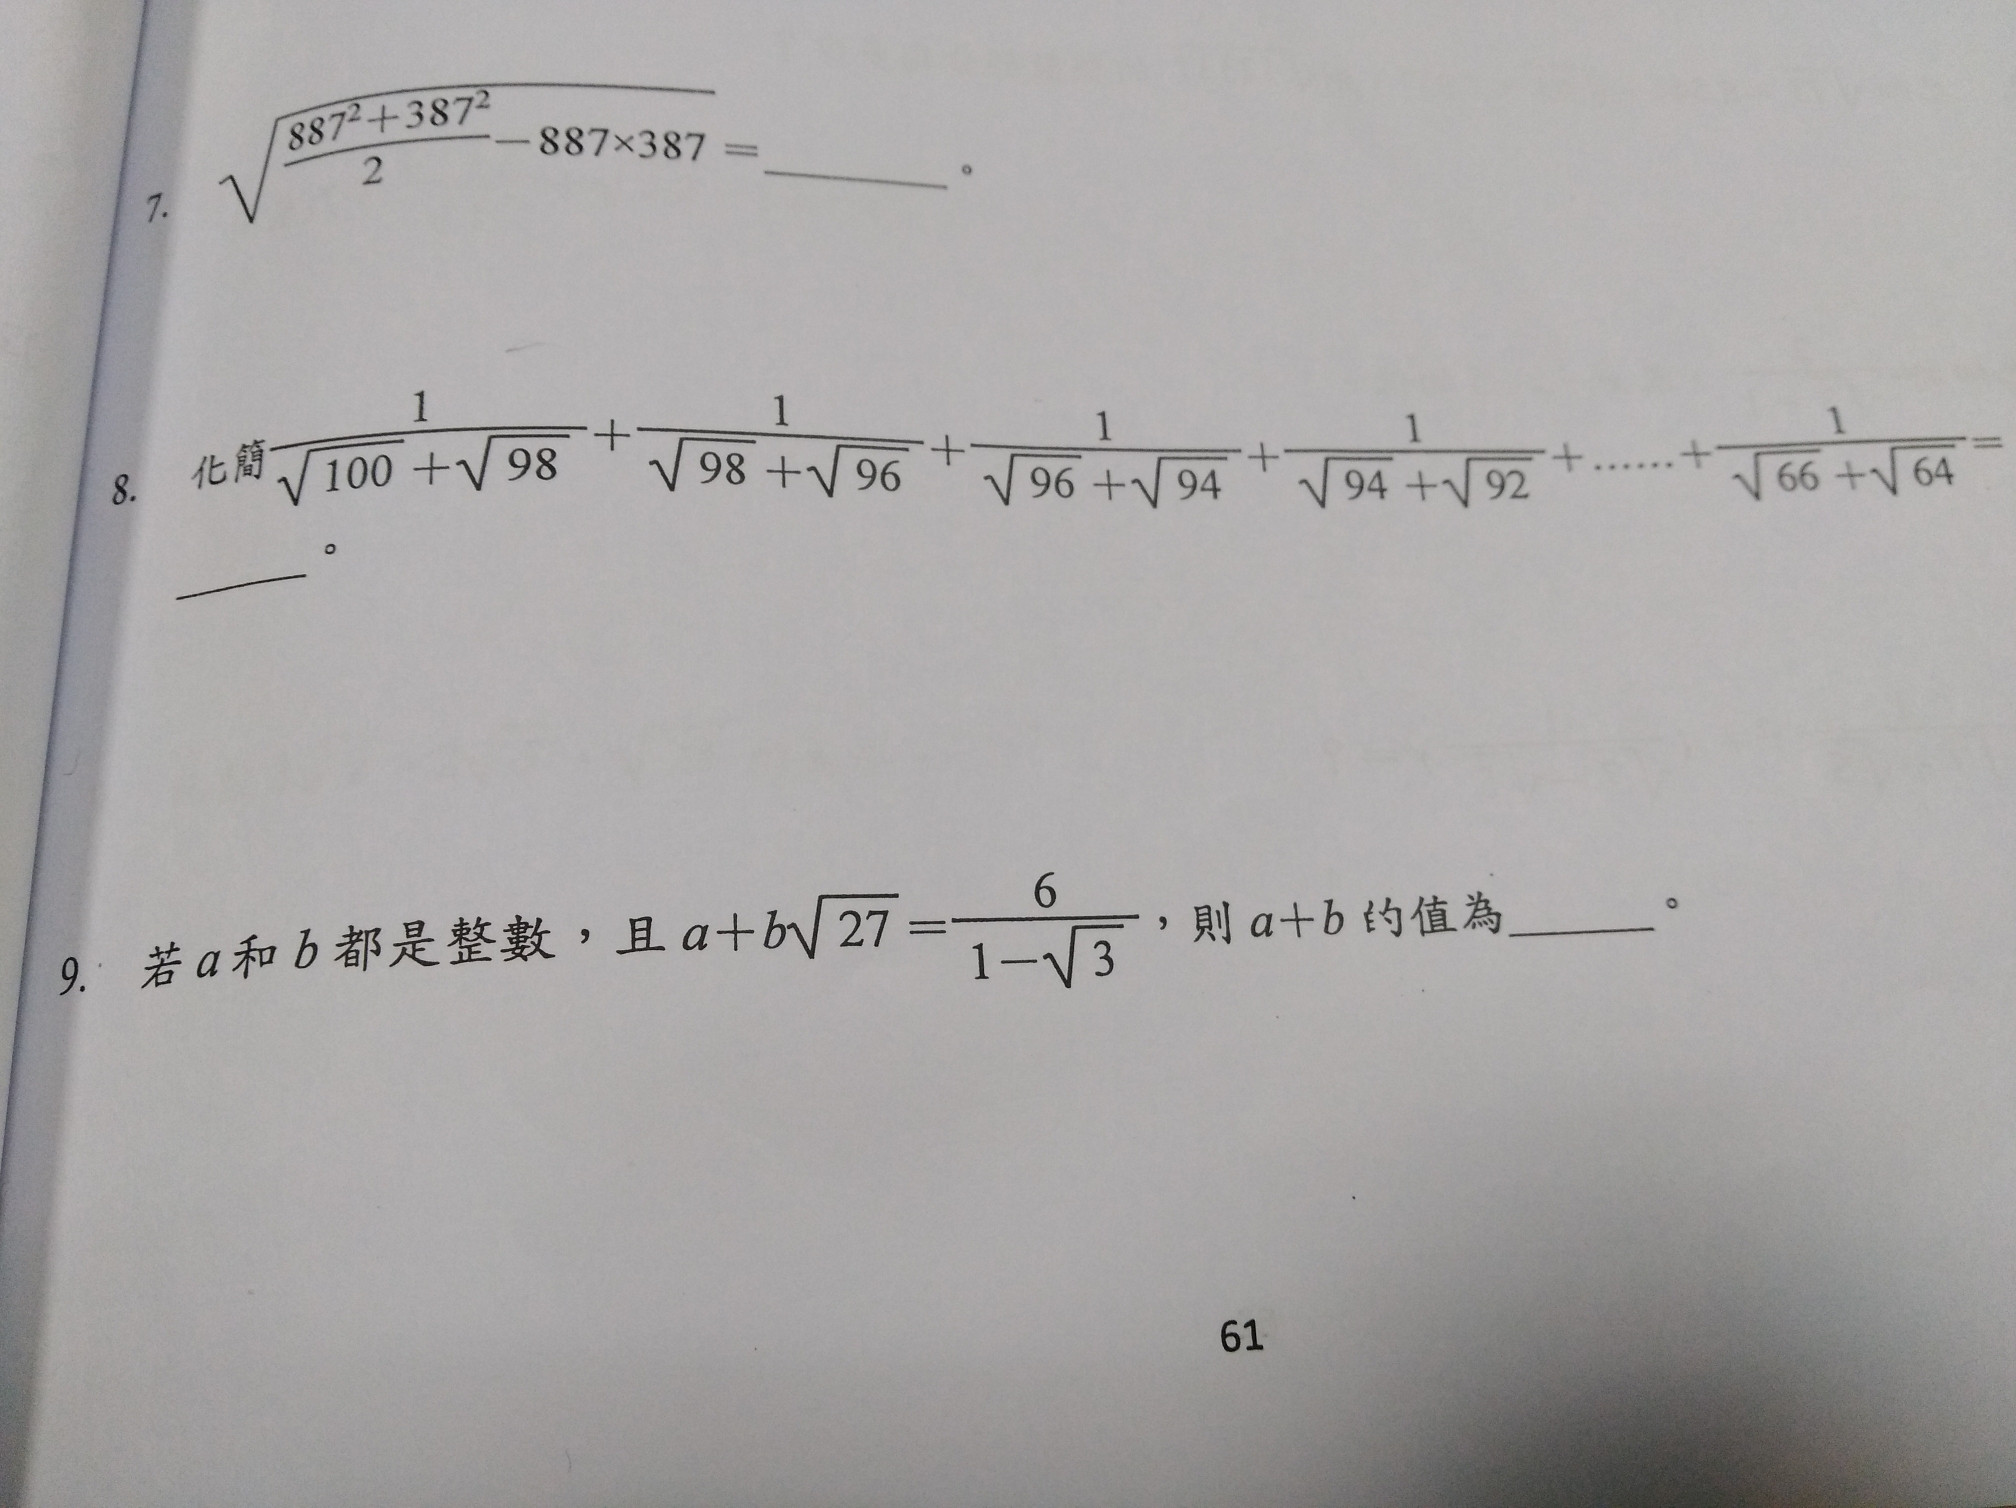 7. √((887²+387²)/2−887×387) =______。
8. 化簡 1/(√100+√98)+1/(√98+√96)+1/(√96+√94)+1/(√94+√92)+……+1/(√66+√64)=
______。
9. 若a和b都是整數，且a+b√27=6/(1−√3)，則a+b的值為______。
61